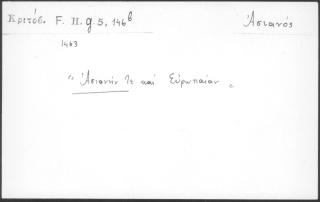 Κριτόβ. F. H. g. 5, 146b Ἀσιανός
1463
"Ἀσιανήν τε καί Εὐρωπαίαν"